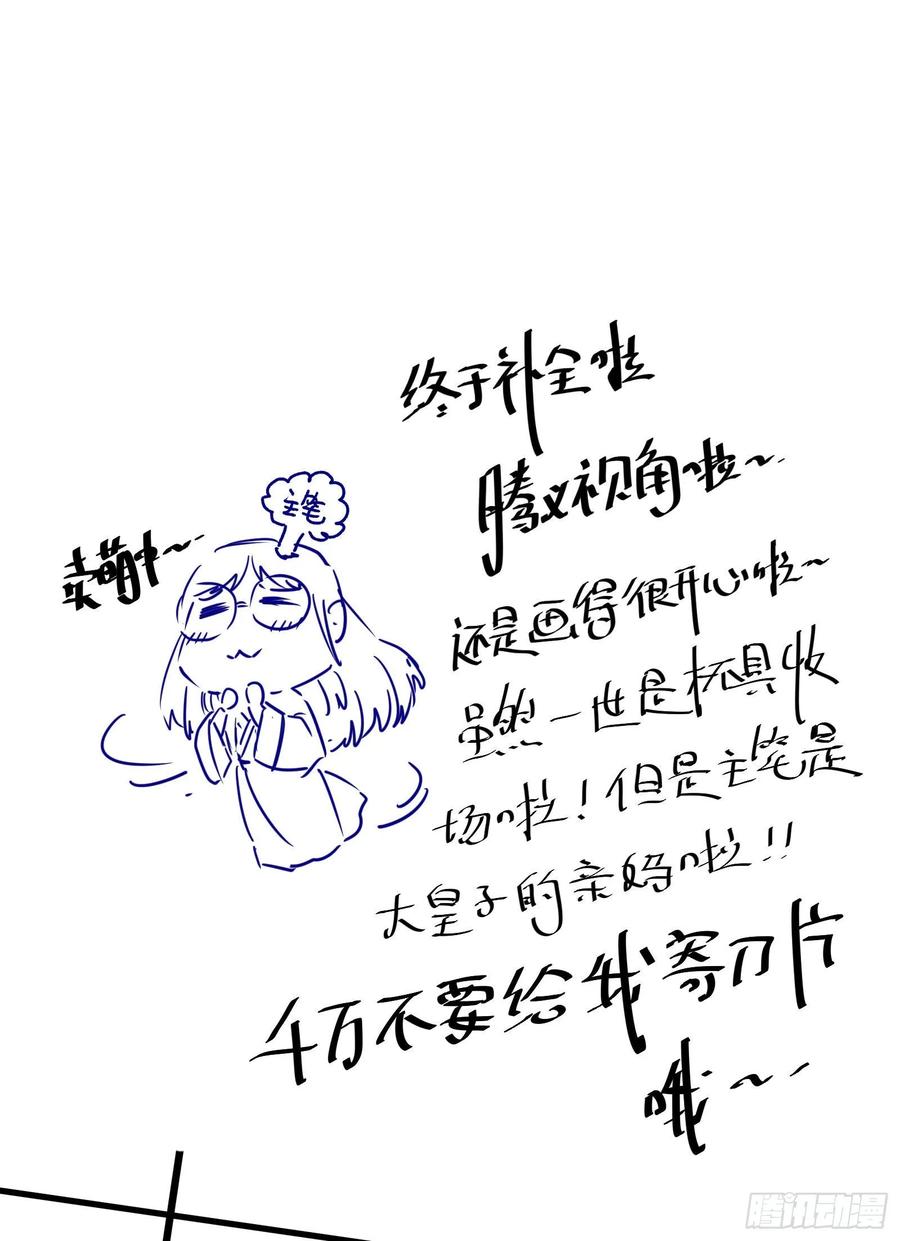 终于补全啦
腾义视角啦~
还是画得很开心啦~
虽然一世是杯具收
场啦!但是主笔是
大皇子的亲妈啦!!
千万不要给我寄刀片
哦~
主笔
卖萌中~
腾讯动漫